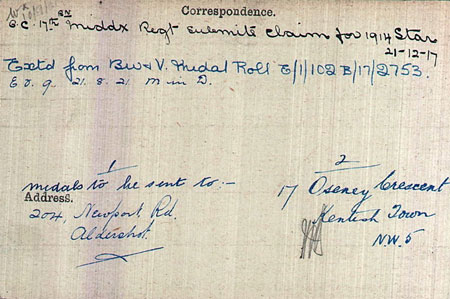 Correspondence.
O.C. 17th BN Middx Regt submits claim for 1914 Star
21-12-17
Extd from BW & V. Medal Roll E/1/102 B/17/2753.
E.V. 9. 21.8.21 M in D.
1
medals to be sent to:-
Address.
204, Newport Rd.
Aldershot
2
17 Oseney Crescent
Kentish Town
N.W.5